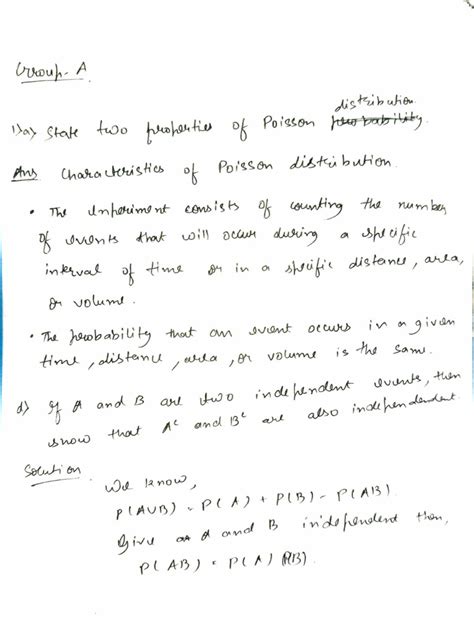 Group-A
distribution
1)a) State two properties of Poisson probability.
Ans Characteristics of Poisson distribution.
• The Experiment consists of counting the number
of events that will occur during a specific
interval of time or in a specific distance, area,
or volume.
• The probability that an event occurs in a given
time, distance, area, or volume is the same.
d) If A and B are two independent events, then
show that Aᶜ and Bᶜ are also independent.
Solution
We know,
P(AUB) = P(A) + P(B) - P(AB).
Give A and B independent then,
P(AB) = P(A) P(B).